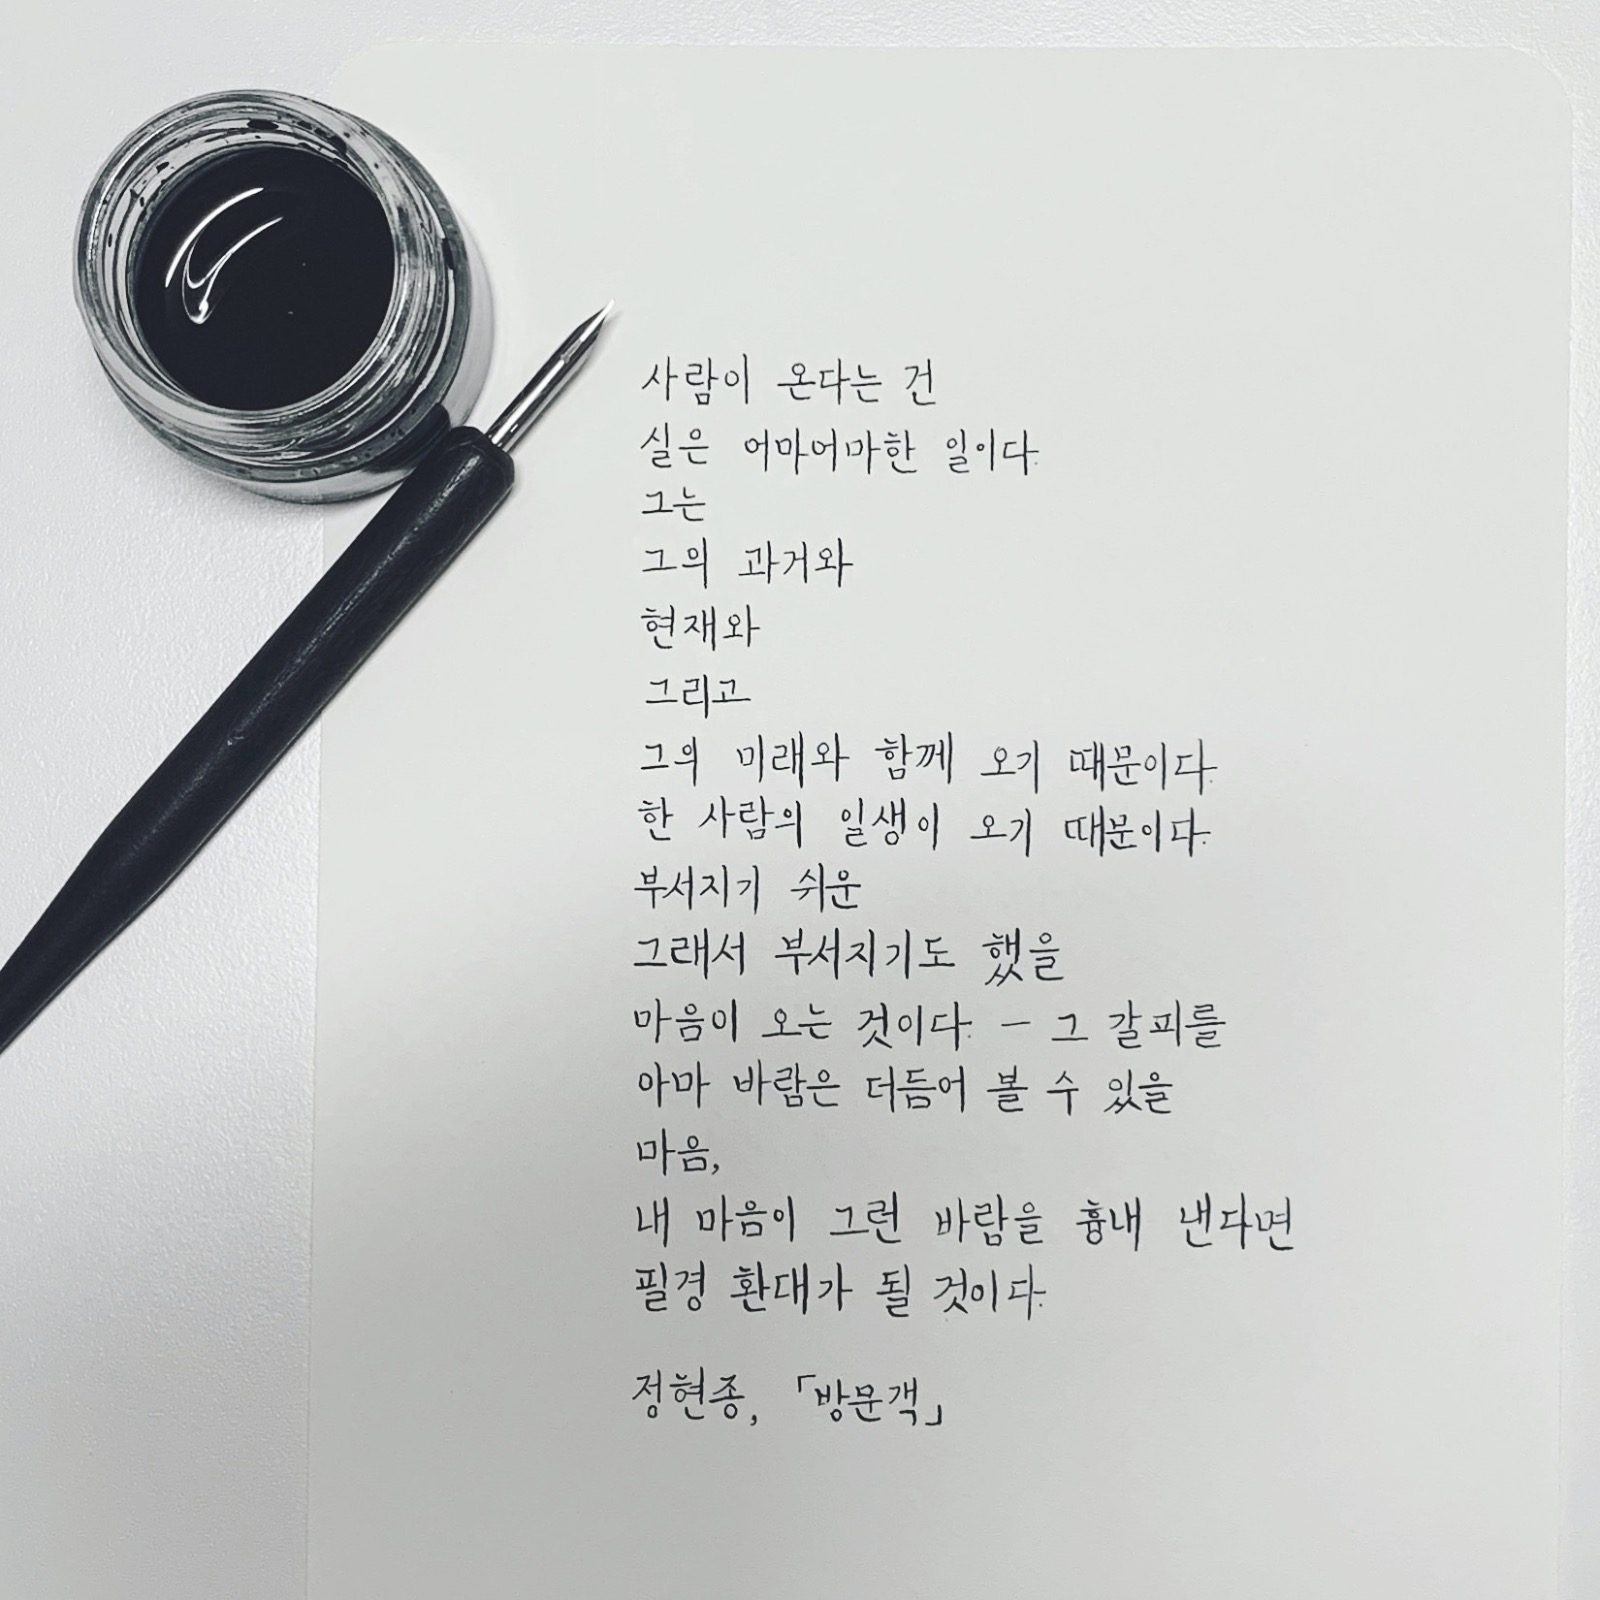 사람이 온다는 건
실은 어마어마한 일이다.
그는
그의 과거와
현재와
그리고
그의 미래와 함께 오기 때문이다.
한 사람의 일생이 오기 때문이다.
부서지기 쉬운
그래서 부서지기도 했을
마음이 오는 것이다. ─ 그 갈피를
아마 바람은 더듬어 볼 수 있을
마음,
내 마음이 그런 바람을 흉내 낸다면
필경 환대가 될 것이다.
정현종, 「방문객」